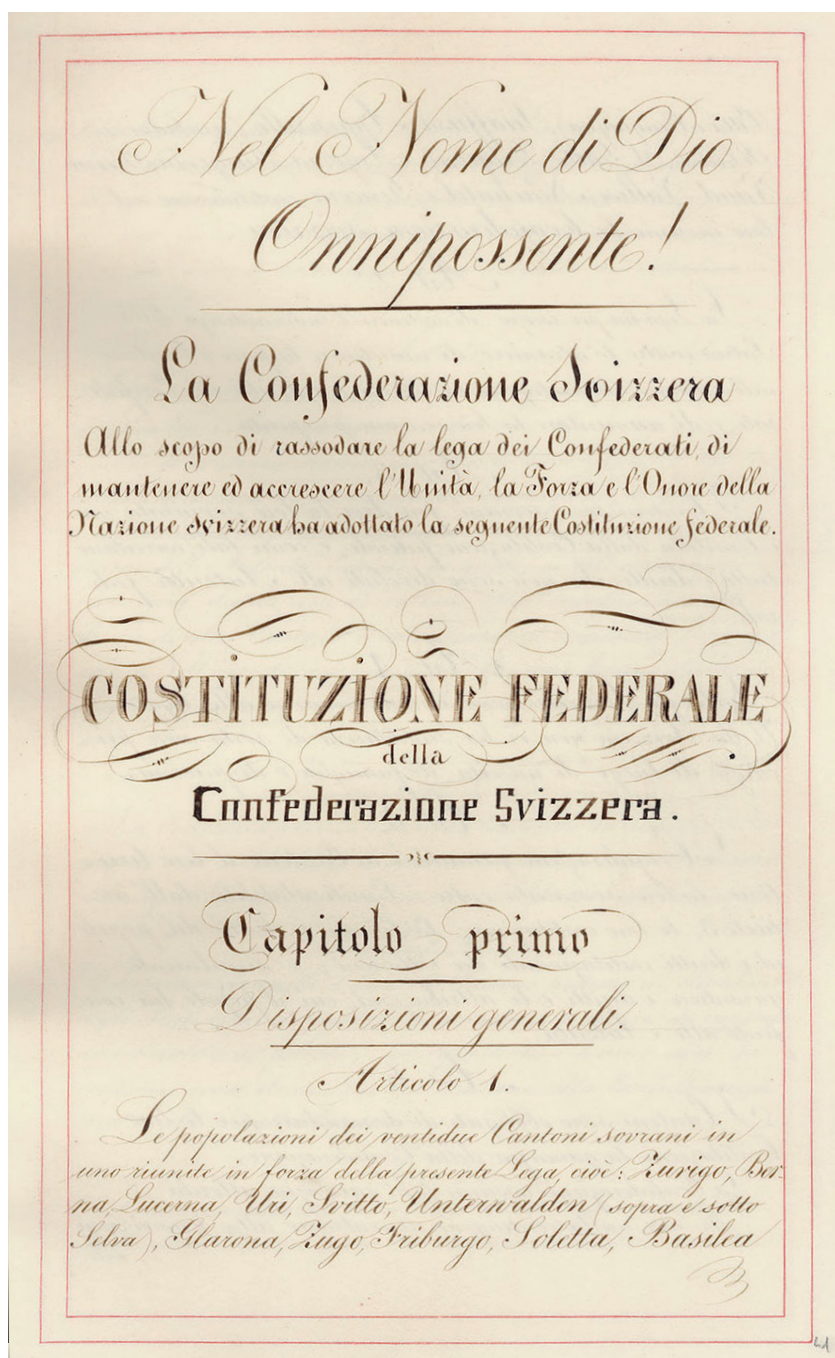 Nel Nome di Dio
Onnipossente!
La Confederazione Svizzera
Allo scopo di rassodare la lega dei Confederati, di
mantenere ed accrescere l'Unità, la Forza e l'Onore della
Nazione svizzera ha adottato la seguente Costituzione federale.
COSTITUZIONE FEDERALE
della
Confederazione Svizzera.
Capitolo primo
Disposizioni generali.
Articolo 1.
Le popolazioni dei ventidue Cantoni sovrani in
uno riunite in forza della presente Lega, cioè: Zurigo, Ber-
na, Lucerna, Uri, Svitto, Unterwalden (sopra e sotto
Selva), Glarona, Zugo, Friburgo, Soletta, Basilea